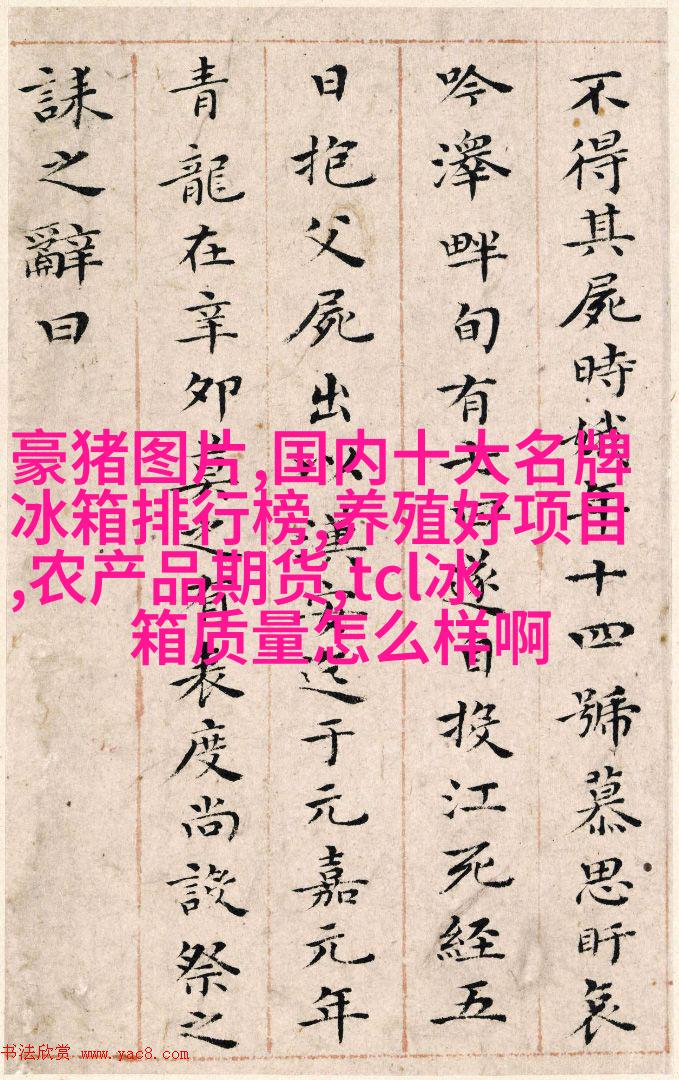 不得其屍時娥年十四號慕思盱哀
吟澤畔旬有七日遂自投江死經五
日抱父屍出以漢安迄于元嘉元年
青龍在辛卯莫之有表度尚設祭之
誄之辭曰
豪猪图片,国内十大名牌
冰箱排行榜,养殖好项目
,农产品期货,tcl冰
箱质量怎么样啊
书法欣赏 www.yac8.com